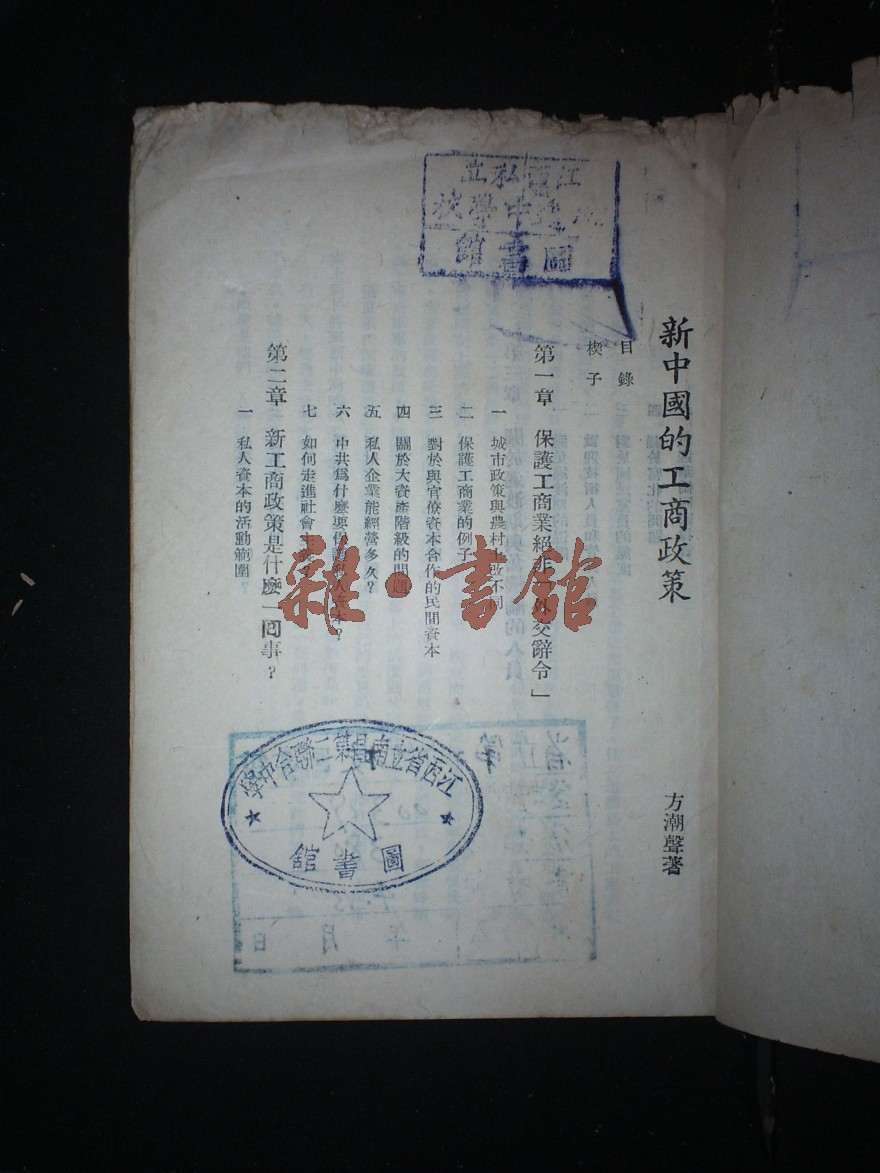 新中國的工商政策
方潮聲著
目錄
楔子
第一章 保護工商業絕非「外交辭令」
一 城市政策與農村土改不同
二 保護工商業的例子
三 對於與官僚資本合作的民間資本
四 關於大資產階級的問題
五 私人企業能經營多久？
六 中共爲什麼要保護私人資本？
七 如何走進社會
第二章 新工商政策是什麼一囘事？
一 私人資本的活動範圍？
江西私立
中學校
圖書館
江西省立南昌第二聯合中學
圖書館
年 月 日
雜·書館